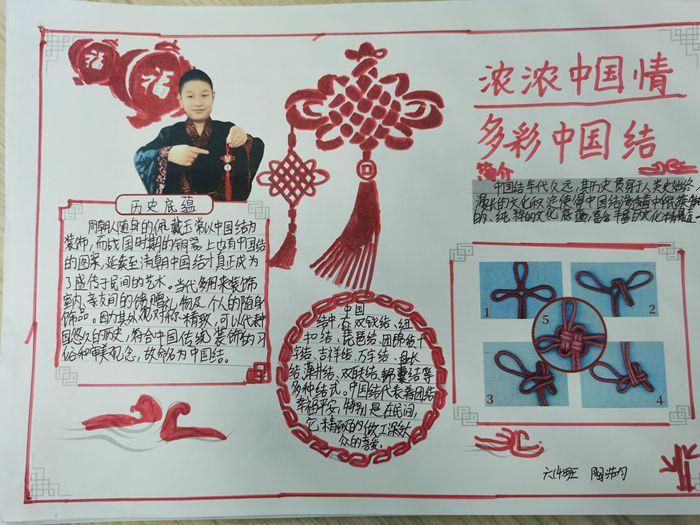 福
福
浓浓中国情
多彩中国结
简介
中国结年代久远,其历史贯穿于人类史始终
漫长的文化积淀使得中国结
的、纯粹的文化底蕴,富含丰富的文化
历史底蕴
周朝人随身的佩戴玉常以中国结为
装饰,而战国时期的铜器上也有中国结
的图案,延续至清朝中国结才真正成为
了盛传于民间的艺术。当代多用来装饰
室内、亲友间的馈赠礼物及个人的随身
饰品。因为其外观对称精致,可以代表中
国悠久的历史,符合中国传统装饰的习
俗和审美观念,故命名为中国结。
中国
结中有双钱结、纽
扣结、琵琶结、团锦结、十
字结、吉祥结、万字结、盘长
结、藻井结、双联结、锦囊结等
多种结式。中国结代表着团结
幸福平安,特别是在民间,
它精致的做工深受大
众的喜爱。
1
2
5
3
4
六(4)班